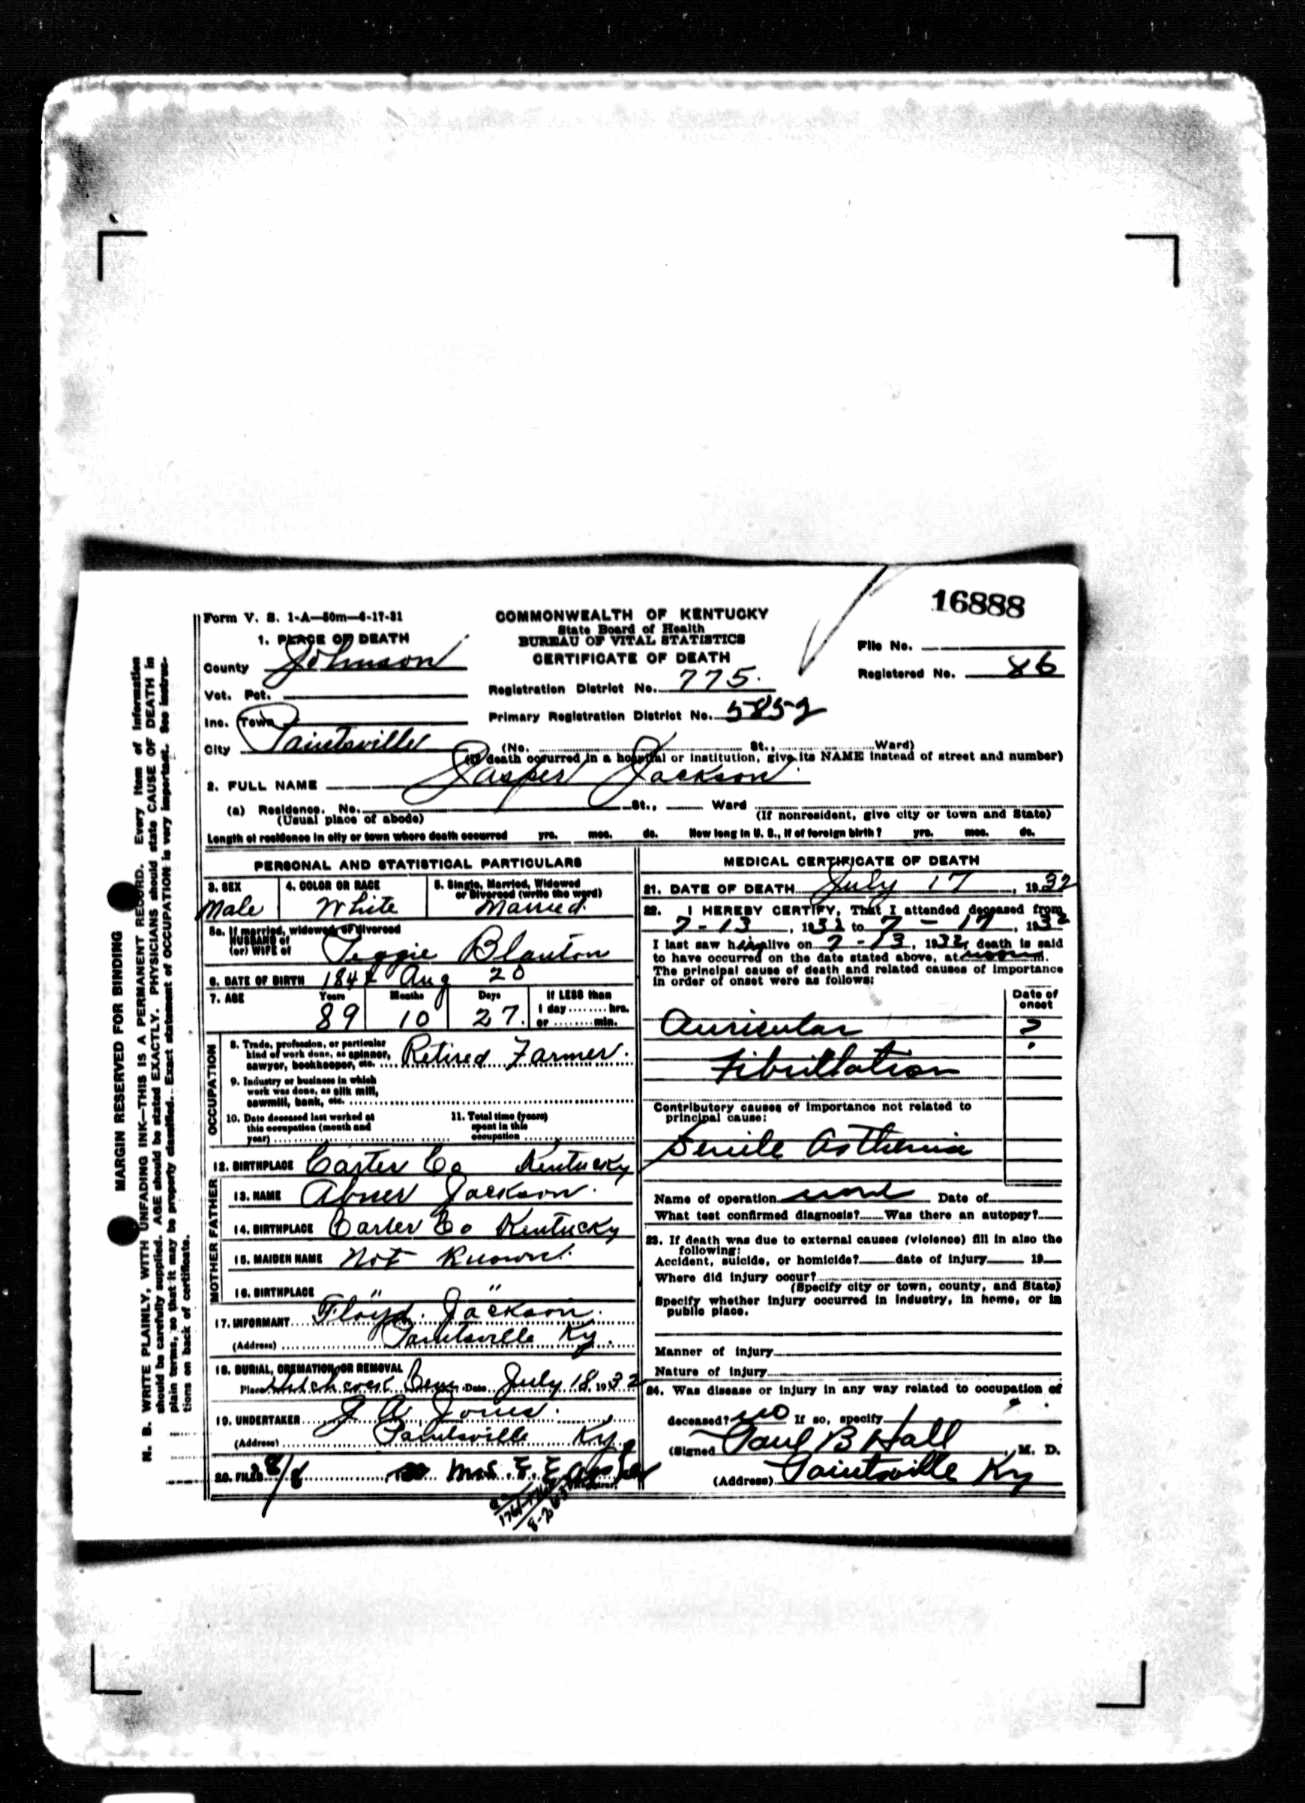 16888
Form V. S. 1-A—50m—6-17-31
COMMONWEALTH OF KENTUCKY
State Board of Health
BUREAU OF VITAL STATISTICS
CERTIFICATE OF DEATH
File No.
Registered No. 86
1. PLACE OF DEATH
County Johnson
Vot. Pct.
Inc. Town
City Paintsville
Registration District No. 775.
Primary Registration District No. 5852
(No. St., Ward)
(If death occurred in a hospital or institution, give its NAME instead of street and number)
2. FULL NAME Jasper Jackson
(a) Residence. No. St., Ward
(Usual place of abode) (If nonresident, give city or town and State)
Length of residence in city or town where death occurred yrs. mos. ds. How long in U. S., if of foreign birth? yrs. mos. ds.
PERSONAL AND STATISTICAL PARTICULARS
3. SEX
Male
4. COLOR OR RACE
White
5. Single, Married, Widowed
or Divorced (write the word)
Married
5a. If married, widowed or divorced
HUSBAND of
(or) WIFE of
Blanton
6. DATE OF BIRTH Aug 20
7. AGE Years Months Days If LESS than
89 10 27 1 day hrs.
or min.
OCCUPATION
8. Trade, profession, or particular
kind of work done, as spinner,
sawyer, bookkeeper, etc. Retired Farmer.
9. Industry or business in which
work was done, as silk mill,
sawmill, bank, etc.
10. Date deceased last worked at
this occupation (month and
year)
11. Total time (years)
spent in this
occupation
12. BIRTHPLACE Carter Co Kentucky
FATHER
13. NAME Abner Jackson.
14. BIRTHPLACE Carter Co Kentucky
MOTHER
15. MAIDEN NAME Not Known.
16. BIRTHPLACE " "
17. INFORMANT Floyd Jackson.
(Address) Paintsville Ky.
18. BURIAL, CREMATION OR REMOVAL
Place Cem Date July 18, 1932
19. UNDERTAKER J A Jones.
(Address) Paintsville Ky.
20. FILED 8/8 Mrs.
Registrar.
MEDICAL CERTIFICATE OF DEATH
21. DATE OF DEATH July 17, 1932
22. I HEREBY CERTIFY, That I attended deceased from
7-13, 1932 to 7-17, 1932
I last saw him alive on 7-13, 1932, death is said
to have occurred on the date stated above, at noon m.
The principal cause of death and related causes of importance
in order of onset were as follows:
Date of
onset
Auricular ?
Fibrillation
Contributory causes of importance not related to
principal cause:
Senile Asthenia
Name of operation Date of
What test confirmed diagnosis? Was there an autopsy?
23. If death was due to external causes (violence) fill in also the
following:
Accident, suicide, or homicide? date of injury 19
Where did injury occur?
(Specify city or town, county, and State)
Specify whether injury occurred in industry, in home, or in
public place.
Manner of injury
Nature of injury
24. Was disease or injury in any way related to occupation of
deceased? no If so, specify
(Signed Paul B Hall, M. D.
(Address) Paintsville Ky
MARGIN RESERVED FOR BINDING
N. B. WRITE PLAINLY, WITH UNFADING INK—THIS IS A PERMANENT RECORD. Every item of information
should be carefully supplied. AGE should be stated EXACTLY. PHYSICIANS should state CAUSE OF DEATH in
plain terms, so that it may be properly classified. Exact statement of OCCUPATION is very important. See instruc-
tions on back of certificate.